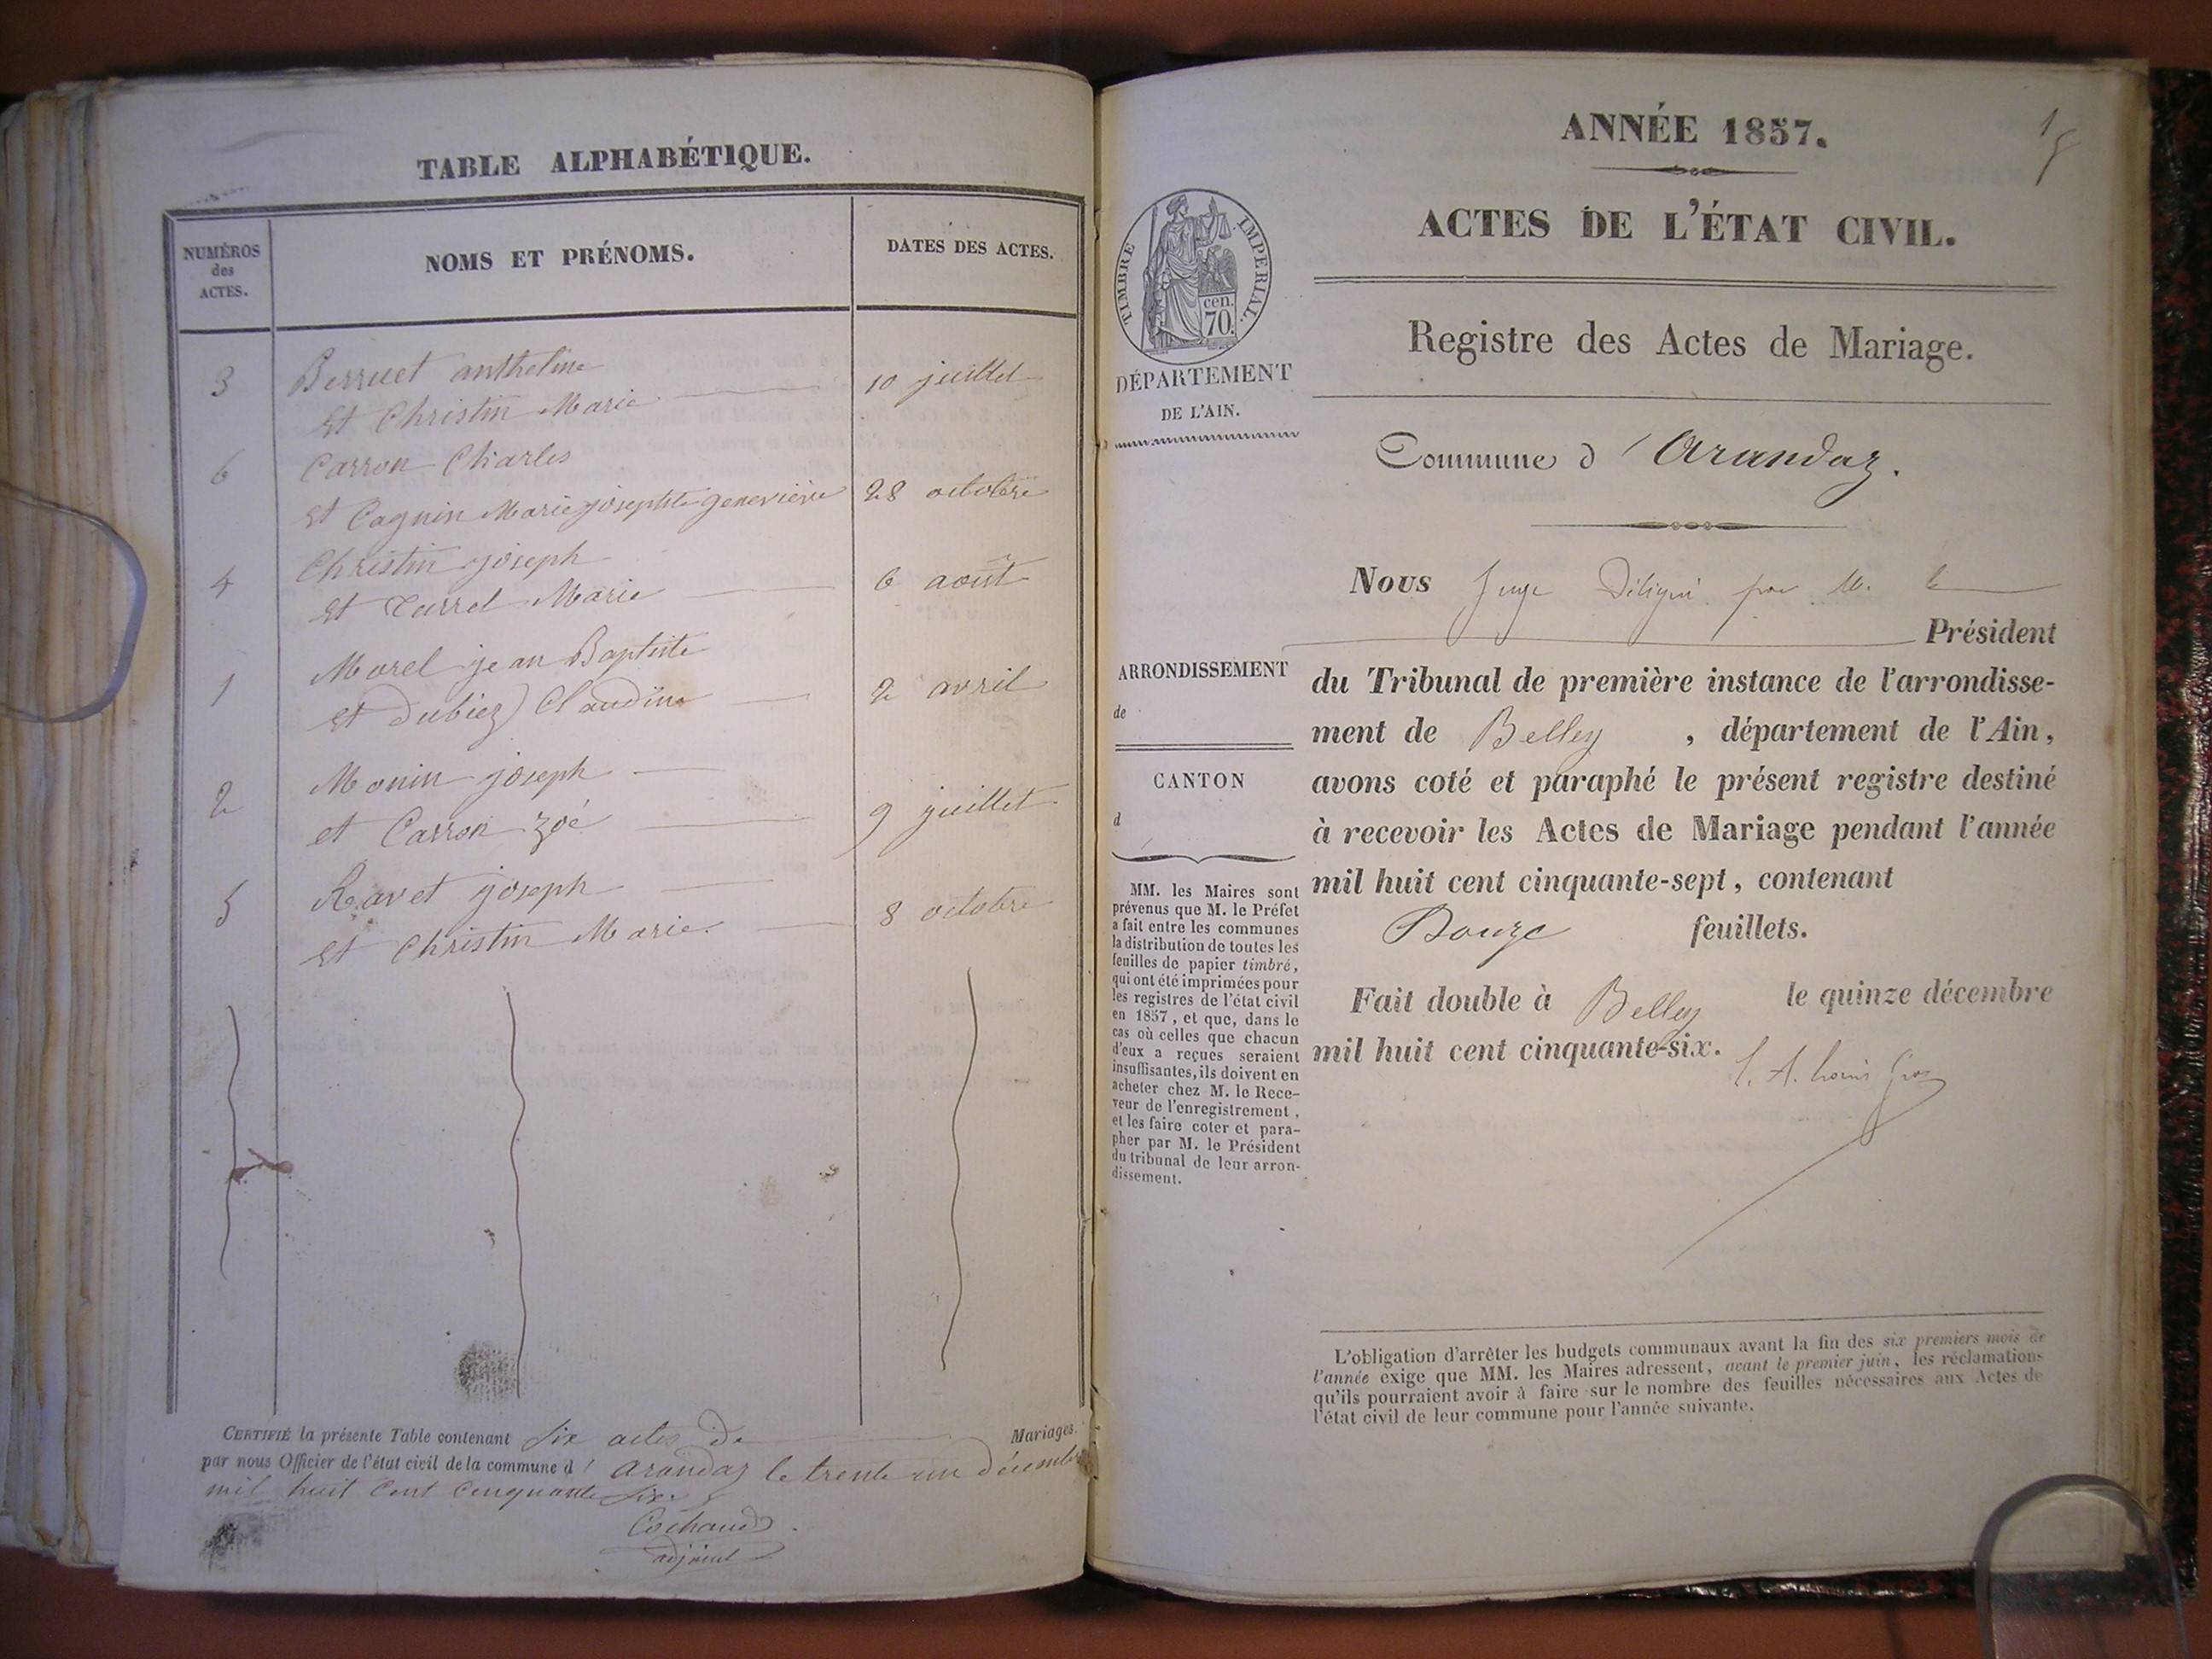 TABLE ALPHABÉTIQUE.
NUMÉROS
des
ACTES.
NOMS ET PRÉNOMS.
DATES DES ACTES.
3 Berruet antheline
et Christin Marie 10 juillet
6 Carron Charles
et Cagnin Marie josephte geneviève 28 octobre
4 Christin joseph
et Marie 6 août
1 Morel jean Baptiste
et Dubiez Claudine 2 avril
2 Monin joseph
et Carron zoé 9 juillet
5 Ravet joseph
et Christin Marie 8 octobre
CERTIFIÉ la présente Table contenant six actes de Mariages.
par nous Officier de l'état civil de la commune d' arandaz le trente un décembre
mil huit Cent Cinquante six.
Cochaud
adjoint
ANNÉE 1857.
1
ACTES DE L'ÉTAT CIVIL.
TIMBRE IMPERIAL.
cen.
70.
DÉPARTEMENT
DE L'AIN.
Registre des Actes de Mariage.
Commune d' Arandaz.
Nous Juge Délégué par M. le
Président
du Tribunal de première instance de l'arrondisse-
ment de Belley , département de l'Ain,
avons coté et paraphé le présent registre destiné
à recevoir les Actes de Mariage pendant l'année
mil huit cent cinquante-sept, contenant
Douze feuillets.
Fait double à Belley le quinze décembre
mil huit cent cinquante-six.
ARRONDISSEMENT
de
CANTON
d
MM. les Maires sont
prévenus que M. le Préfet
a fait entre les communes
la distribution de toutes les
feuilles de papier timbré,
qui ont été imprimées pour
les registres de l'état civil
en 1857, et que, dans le
cas où celles que chacun
d'eux a reçues seraient
insuffisantes, ils doivent en
acheter chez M. le Rece-
veur de l'enregistrement,
et les faire coter et para-
pher par M. le Président
du tribunal de leur arron-
dissement.
L'obligation d'arrêter les budgets communaux avant la fin des six premiers mois de
l'année exige que MM. les Maires adressent, avant le premier juin, les réclamations
qu'ils pourraient avoir à faire sur le nombre des feuilles nécessaires aux Actes de
l'état civil de leur commune pour l'année suivante.